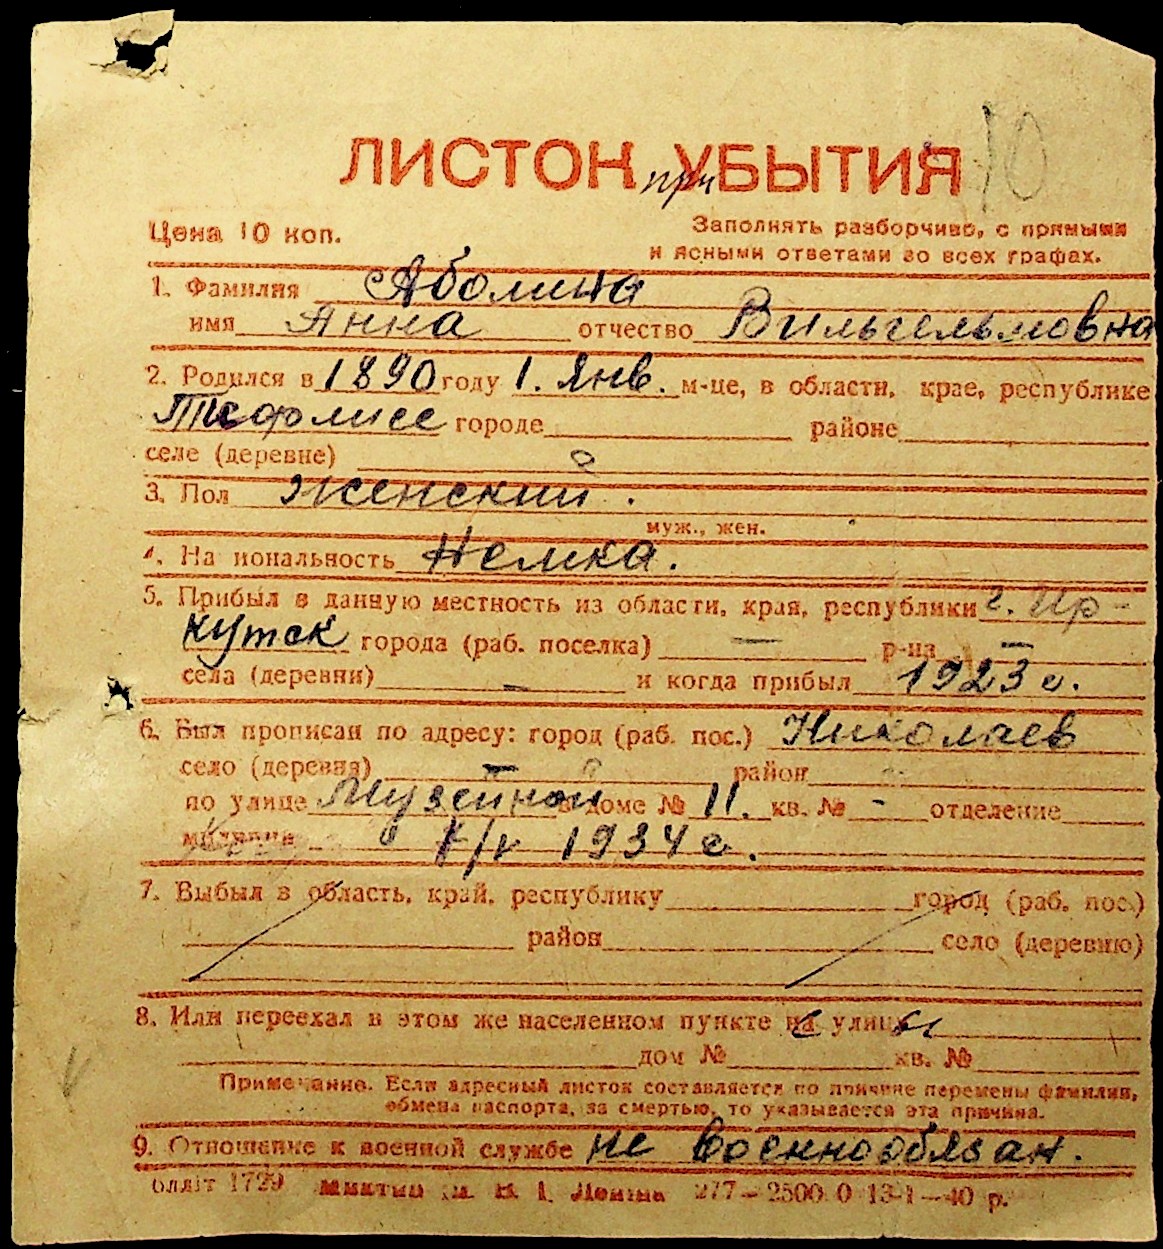 ЛИСТОК при УБЫТИЯ 10
Цена 10 коп.
Заполнять разборчиво, с прямыми
и ясными ответами во всех графах.
1. Фамилия Аболина
имя Анна отчество Вильгельмовна
2. Родился в 1890 году 1. Янв. м-це, в области, крае, республике
Тифлисе городе районе
селе (деревне)
3. Пол женский.
муж., жен.
4. На иональность Немка.
5. Прибыл в данную местность из области, края, республики г. Ир-
кутск города (раб. поселка) — р-на —
села (деревни) — и когда прибыл 1923 г.
6. Был прописан по адресу: город (раб. пос.) Николаев
село (деревня) — район
по улице Музейной в доме № 11. кв. № - отделение
милиции 1934 г.
7. Выбыл в область, край, республику город (раб. пос.)
район село (деревню)
8. Или переехал в этом же населенном пункте на улицу
дом № кв. №
Примечание. Если адресный листок составляется по причине перемены фамилии,
обмена паспорта, за смертью, то указывается эта причина.
9. Отношение к военной службе не военнообязан.
1729 Ленина 277—2500.0 13-1—40 р.